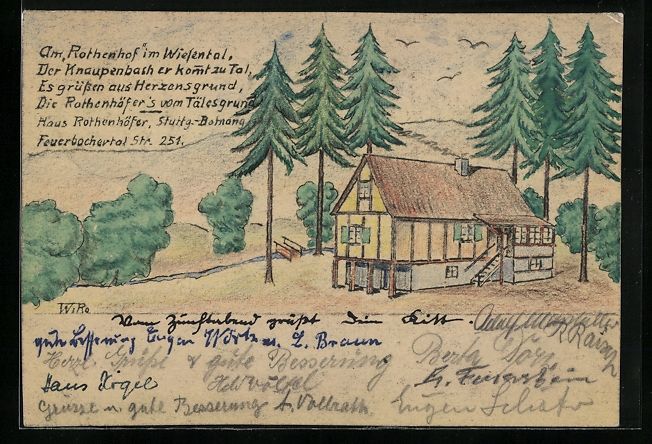 Am „Rothenhof" im Wiesental,
Der Knaupenbach er kom̄t zu Tal,
Es grüßen aus Herzensgrund,
Die Rothenhöfer's vom Talesgrund
Haus Rothenhöfer, Stuttg-Botnang
Feuerbachertal Str. 251.
WiRo
Vom Zunftabend grüßt Dein Kitt.
gute Besserung Eugen Wörtz u. E. Braun
Herzl. Grüße & gute Besserung
Berta
Hans Kögel
Gruesse u. gute Besserung A. Vollrath
Eugen